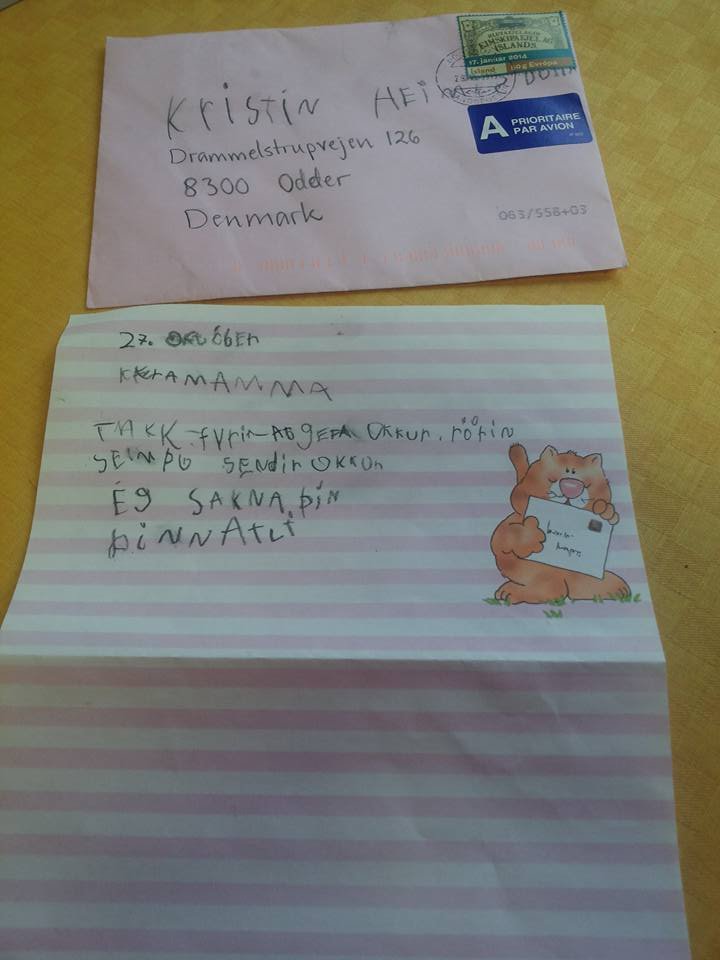 HLUTAFJELAGIÐ
EIMSKIPAFJELAG
ÍSLANDS
17. janúar 2014
Ísland 50g Evrópa
KRISTIN HEIM
A PRIORITAIRE
PAR AVION
Drammelstrupvejen 126
8300 Odder
Denmark
063/558+03
27. OKTÓBER
KÆRA MAMMA
TAKK fyrir AÐ gEFA OKKUR. FÖTIN
SEIM ÞÚ SENDIR OKKUR
Ég SAKNA ÞÍN
ÞINN ATLI